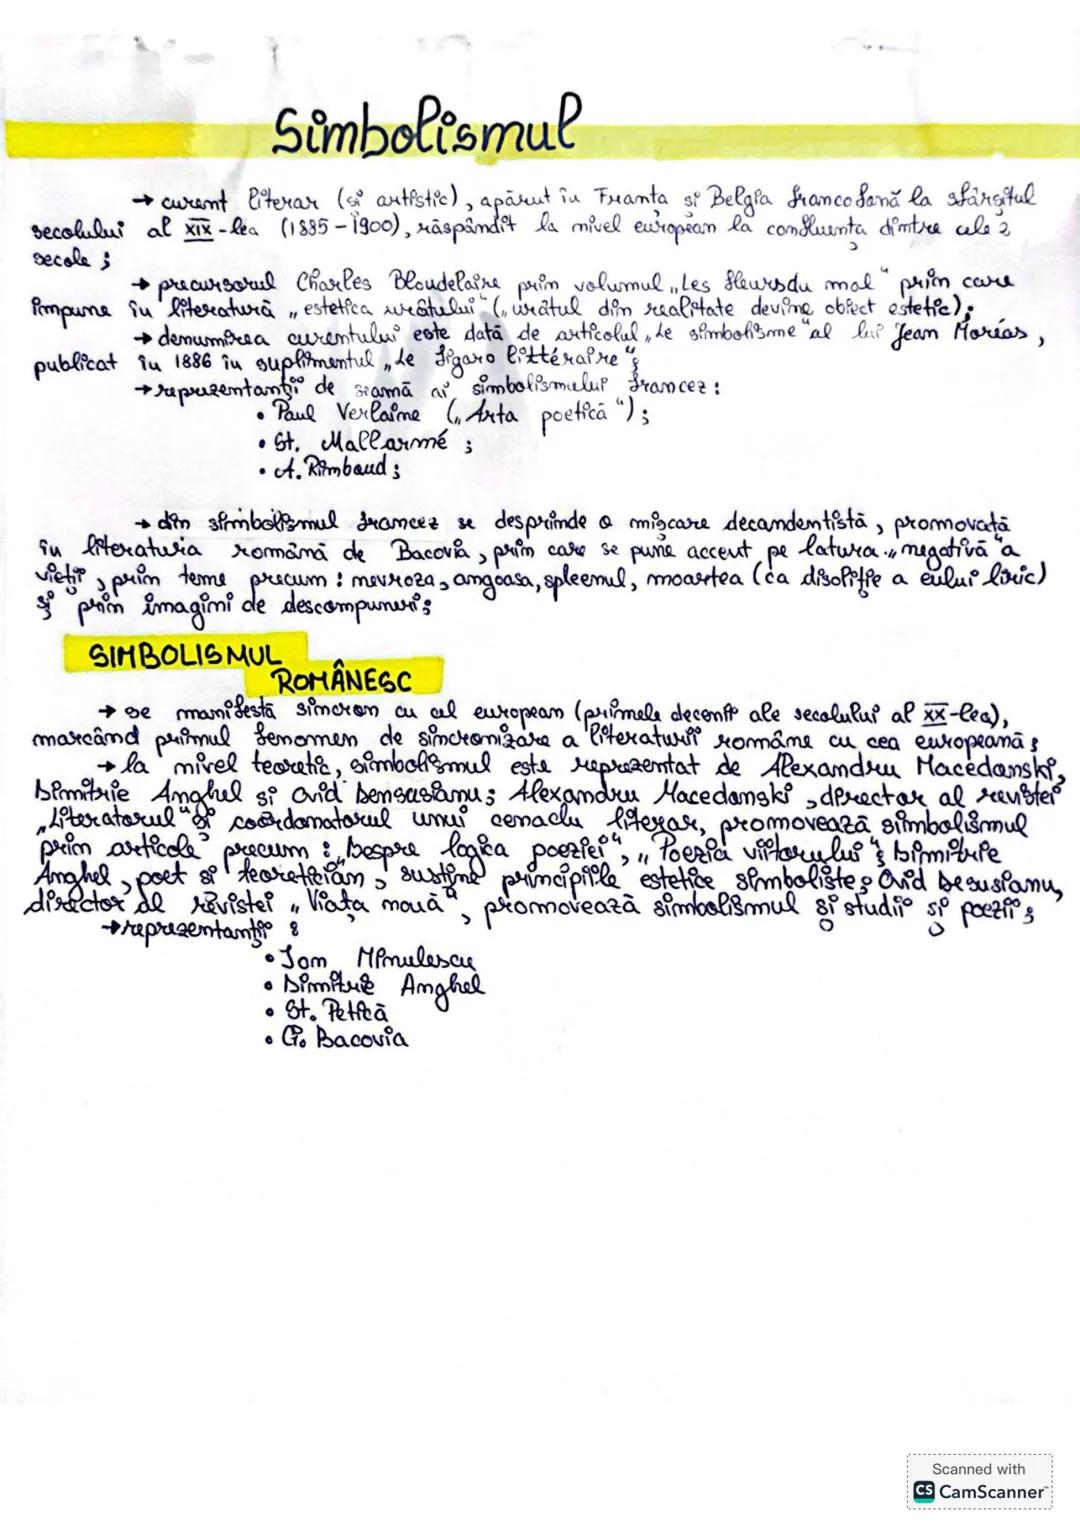 Simbolismul
→ curent literar (și artistic), apărut în Franța și Belgia francofonă la sfârșitul
secolului al XIX-lea (1885-1900), răspândit la nivel european la confluența dintre cele 2
secole;
→ precursorul Charles Bloudelaire prin volumul „Les fleursdu mal" prin care
impune în literatură „estetica urâtului" („urâtul din realitate devine obiect estetic);
→ denumirea curentului este dată de articolul „Le simbolisme" al lui Jean Moréas,
publicat în 1886 în suplimentul „Le Figaro littéraire";
→ reprezentanții de seamă ai simbolismului francez:
• Paul Verlaine („Arta poetică");
• St. Mallarmé;
• A. Rimbaud;
→ din simbolismul francez se desprinde o mișcare decandentistă, promovată
în literatura română de Bacovia, prin care se pune accent pe latura „negativă" a
vieții, prin teme precum: nevroza, angoasa, spleenul, moartea (ca disoliție a eului liric)
și prin imagini de descompuneri;
SIMBOLISMUL
ROMÂNESC
→ se manifestă sincron cu cel european (primele decenii ale secolului al XX-lea),
marcând primul fenomen de sincronizare a literaturii române cu cea europeană;
→ la nivel teoretic, simbolismul este reprezentat de Alexandru Macedonski,
Dimitrie Anghel și Ovid Densusianu; Alexandru Macedonski, director al revistei
„Literatorul" și coordonatorul unui cenaclu literar, promovează simbolismul
prin articole precum: „Despre logica poeziei", „Poezia viitorului"; Dimitrie
Anghel, poet și teoretician, susține principiile estetice simboliste; Ovid Desusianu,
director al revistei „Viața nouă", promovează simbolismul și studii și poezii;
→ reprezentanții:
• Ion Minulescu
• Dimitrie Anghel
• St. Petică
• G. Bacovia
Scanned with
CS CamScanner